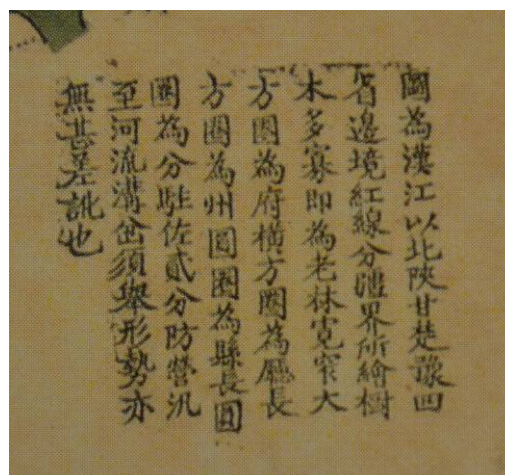 圖為漢江以北陝甘楚豫四
省邊境紅線分漋界所繪樹
木多寡即為老林寬窄大
方圈為府橫方圈為廳長
方圈為州圓圈為縣長圓
圈為分駐佐貳分防營汛
至河流溝岔須舉形勢亦
無甚差訛也